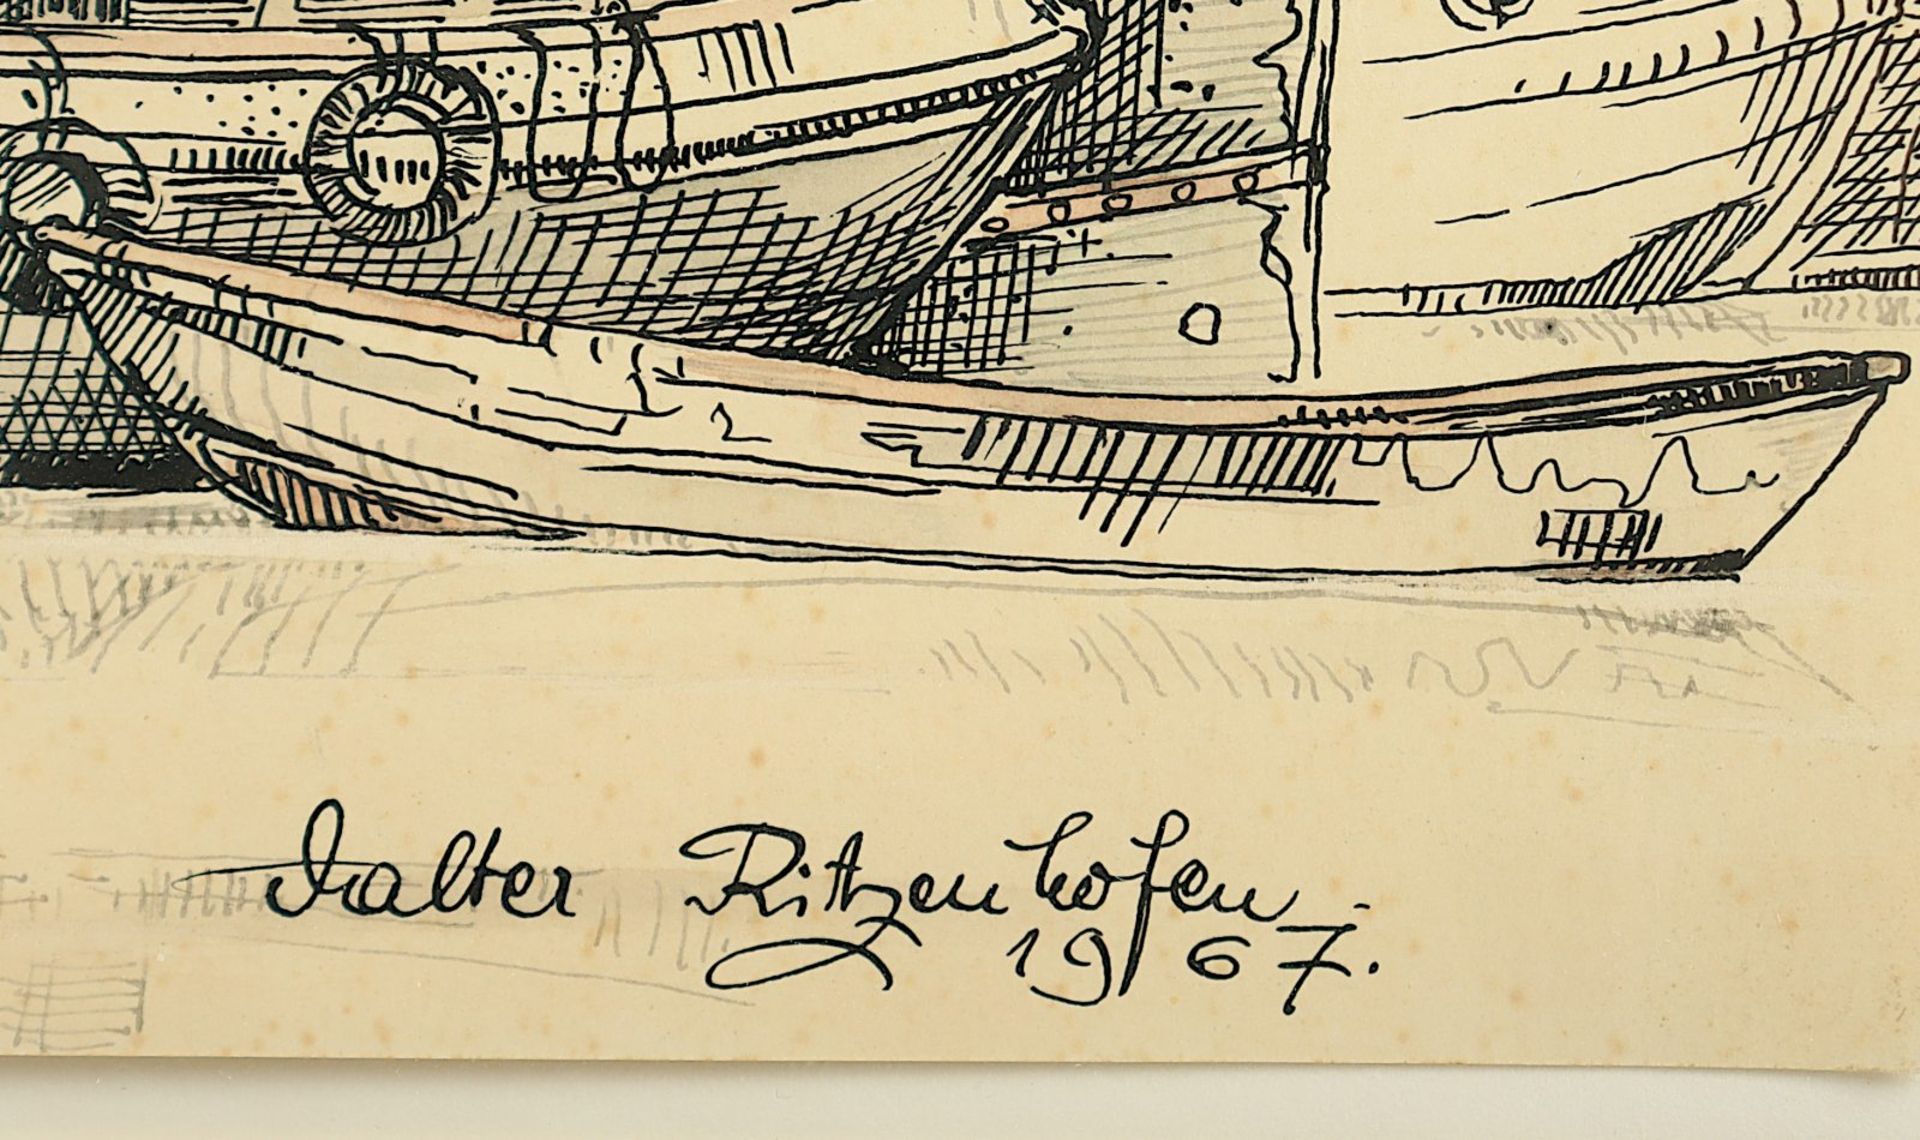 Walter Ritzenhofen
1967.